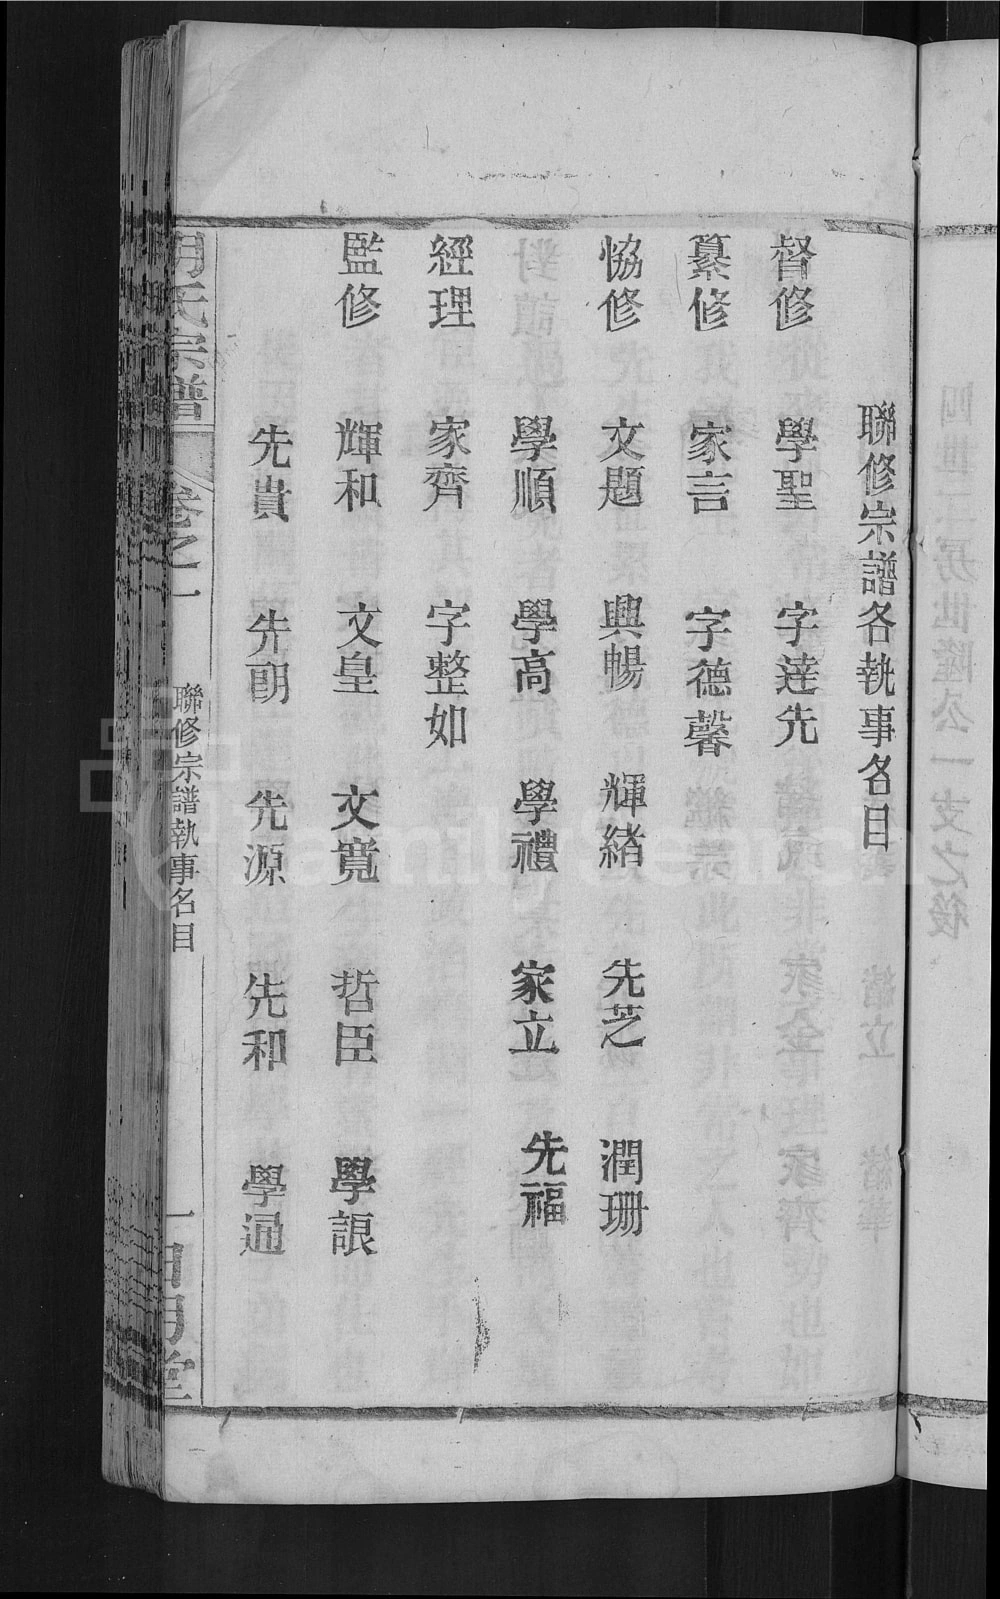 聯修宗譜各執事名目
督修 學聖 字達先
纂修 家言 字德馨
恊修 文題 興暢 輝緒 先芝 潤珊
學順 學高 學禮 家立 先福
經理 家齊 字整如
監修 輝和 文皇 文寬 哲臣 學詪
先貴 先朗 先源 先和 學通
氏宗譜 卷之一 聯修宗譜執事名目 一 明堂
FamilySearch